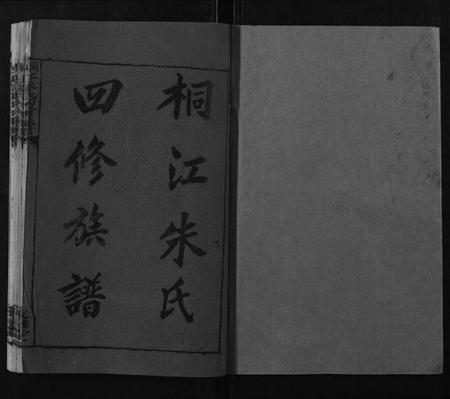 桐江朱氏
四修族譜